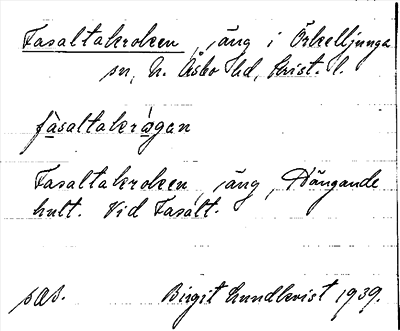 Fasaltakroken, äng i Örkelljunga
sn, N. Åsbo hd, Krist. l.
fàsaltakrɔ́gan
Fasaltakroken, äng, Hängande
hult. Vid Fasalt.
sas.
Birgit Lundkvist 1939.